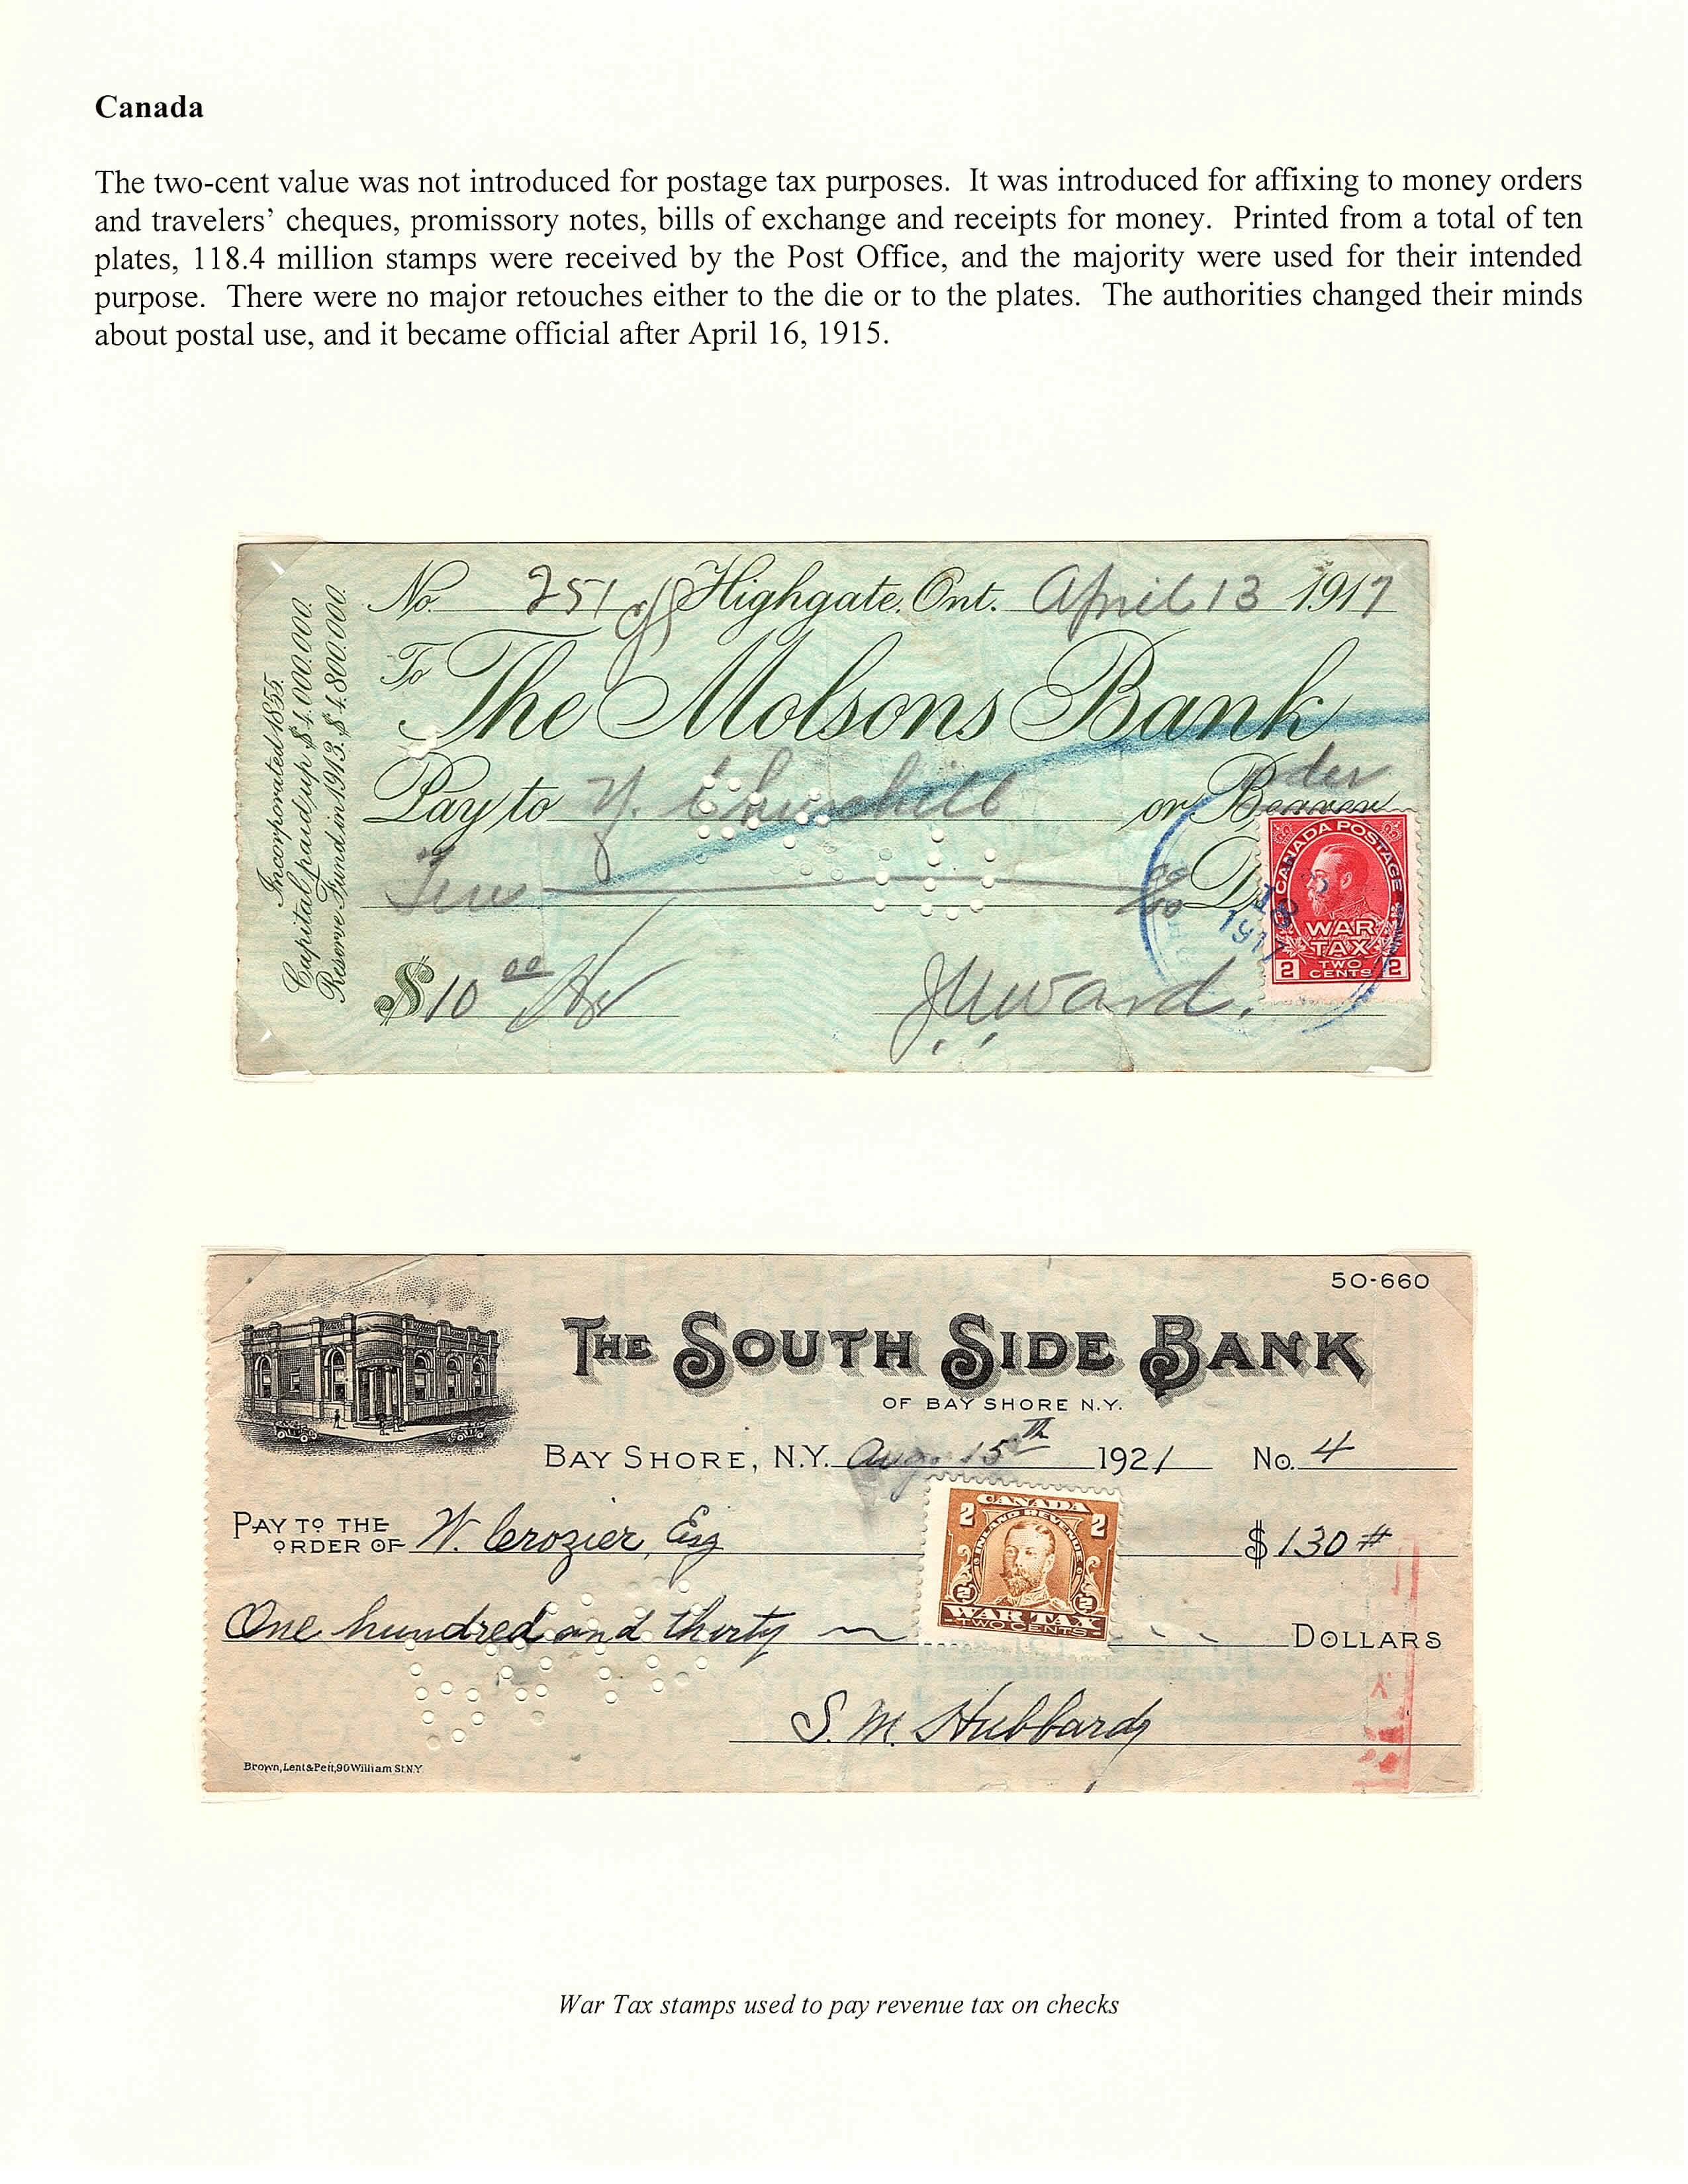 Canada
The two-cent value was not introduced for postage tax purposes. It was introduced for affixing to money orders
and travelers' cheques, promissory notes, bills of exchange and receipts for money. Printed from a total of ten
plates, 118.4 million stamps were received by the Post Office, and the majority were used for their intended
purpose. There were no major retouches either to the die or to the plates. The authorities changed their minds
about postal use, and it became official after April 16, 1915.
Incorporated 1855.
Capital paid up $4.000.000.
Reserve Fund in 1913. $4.800.000.
No. 251 Highgate, Ont. April 13 1917
To The Molsons Bank
Pay to Churchill or Bearer
Order
Ten
$10 00
Ward.
CANADA POSTAGE
WAR
TAX
TWO
CENTS
2 2
50-660
THE SOUTH SIDE BANK
OF BAY SHORE N.Y.
BAY SHORE, N.Y. Aug. 15th 1921 No. 4
PAY TO THE
ORDER OF W. Crozier, Esq $130 #
One hundred and thirty DOLLARS
2 CANADA 2
INLAND REVENUE
2 2
WAR TAX
TWO CENTS
S. M. Hubbard
Brown, Lent & Pett, 90 William St. N.Y
War Tax stamps used to pay revenue tax on checks